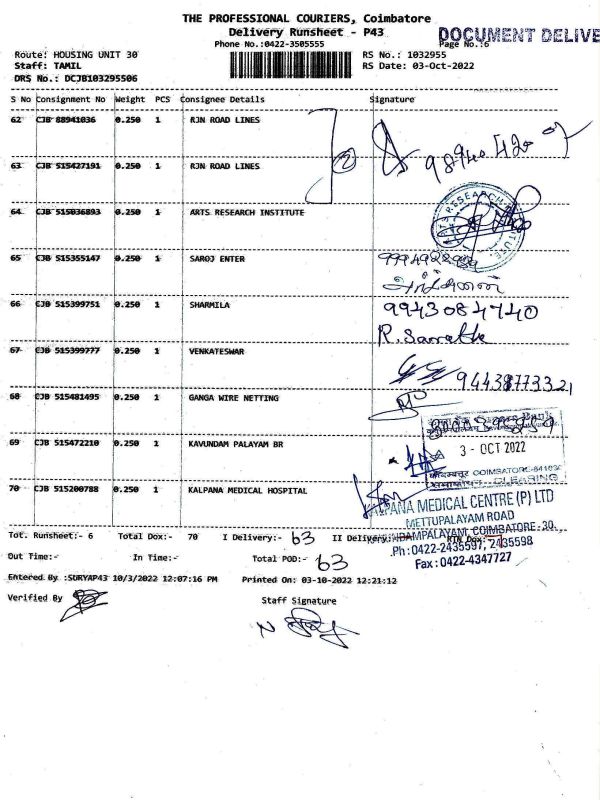 THE PROFESSIONAL COURIERS, Coimbatore
Delivery Runsheet - P43
DOCUMENT DELIVE
Phone No.:0422-3505555
Page No.:6
Route: HOUSING UNIT 30
RS No.: 1032955
Staff: TAMIL
RS Date: 03-Oct-2022
DRS No.: DCJB103295506
S No Consignment No Weight PCS Consignee Details Signature
62 CJB 88941036 0.250 1 RJN ROAD LINES
63 CJB 515427191 0.250 1 RJN ROAD LINES
64 CJB 515036893 0.250 1 ARTS RESEARCH INSTITUTE
65 CJB 515355147 0.250 1 SAROJ ENTER
66 CJB 515399751 0.250 1 SHARMILA 9943084740
67 CJB 515399777 0.250 1 VENKATESWAR
68 CJB 515481495 0.250 1 GANGA WIRE NETTING
69 CJB 515472210 0.250 1 KAVUNDAM PALAYAM BR
3 - OCT 2022
COIMBATORE-641030
CLEARING
70 CJB 515200788 0.250 1 KALPANA MEDICAL HOSPITAL
KALPANA MEDICAL CENTRE (P) LTD
METTUPALAYAM ROAD
KAVUNDAMPALAYAM, COIMBATORE-30.
Ph:0422-2435597, 2435598
Fax:0422-4347727
Tot. Runsheet:- 6 Total Dox:- 70 I Delivery:- 63 II Delivery:- RTN Dox:-
Out Time:- In Time:- Total POD:- 63
Entered By :SURYAP43 10/3/2022 12:07:16 PM Printed On: 03-10-2022 12:21:12
Verified By
Staff Signature